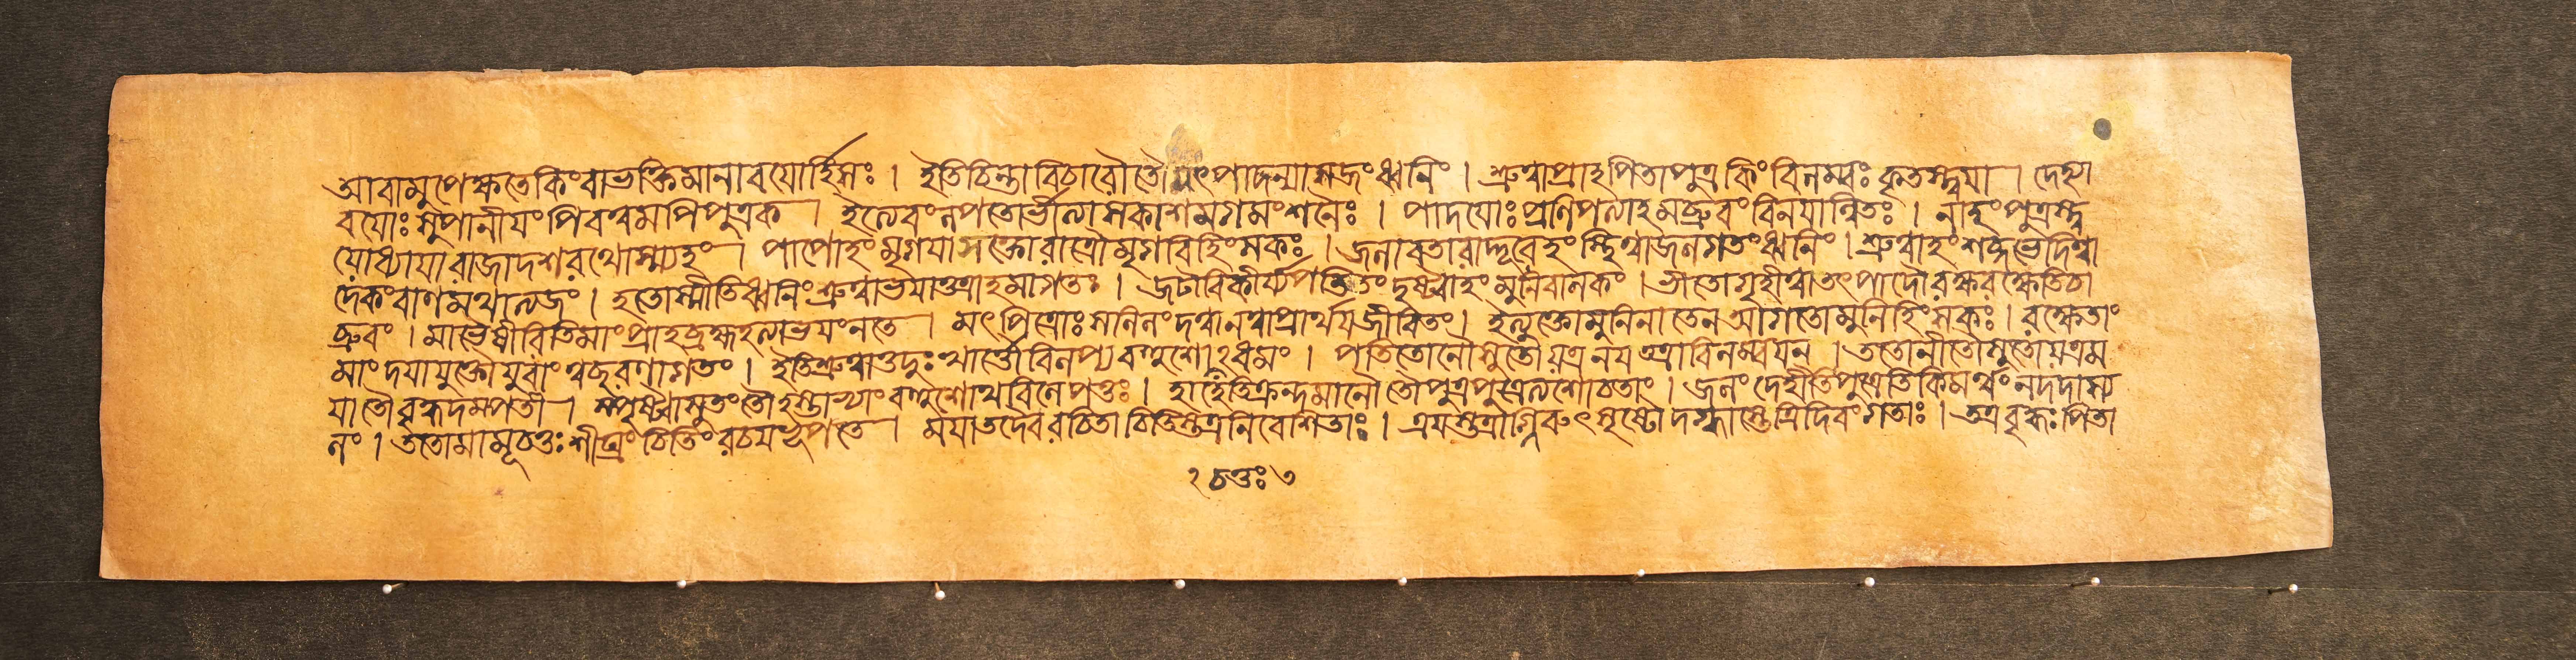 আবামুপেক্ষতেকিংবাভক্তিমানাবয়োর্হিসঃ । ইতিচিন্তাবিচারৌতৌমৎপাদন্যাসজংধ্বনিং । শ্রুত্বাপ্রাহপিতাপুত্রকিংবিলম্বঃকৃতস্ত্বয়া । দেহ্যা
বয়োঃসুপানীয়ংপিবত্বমপিপুত্রক । ইত্যেবংলপতোর্ভীত্যাসকাশমগমংশনৈঃ । পাদয়োঃপ্রণিপত্যাহমব্রুবংবিনয়ান্বিতঃ । নাহংপুত্রস্ত্ব
য়োধ্যায়ারাজাদশরথোস্ম্যহং । পাপোহংমৃগয়াসক্তোরাত্রৌমৃগবিহিংসকঃ । জলাবতারাদ্দূরেহংস্থিত্বাজলগতংধ্বনিং । শ্রুত্বাহংশব্দভেদিত্বা
দেকংবাণমথাত্যজং । হতোস্মীতিধ্বনিংশ্রুত্বাভয়াত্তত্রাহমাগতঃ । জটাবিকীর্য্যপতিতংদৃষ্ট্বাহংমুনিবালকং । ভীতোগৃহীত্বাতৎপাদৌরক্ষরক্ষেতিচা
ব্রুবং । মাভৈর্ষীরিতিমাংপ্রাহব্রহ্মহত্যাভয়ংনতে । মৎপিত্রোঃসলিলংদত্বানত্বাপ্রার্থয়জীবিতং । ইত্যুক্তোমুনিনাতেনআগতোমুনিহিংসকঃ । রক্ষেতাং
মাংদয়াযুক্তৌযুবাংত্বচ্ছরণাগতং । ইতিশ্রুত্বাতুদুঃখার্ত্তৌবিলপ্যবহুশোধমং । পতিতোনৌসুতৌয়ত্রনয়তত্রাবিলম্বয়ন । ততোনীতৌসুতোয়ত্রম
য়াতৌবৃদ্ধদম্পতী । স্পৃষ্ট্বাসুতংতৌহস্তাভ্যাংবহুশোথবিলেপতুঃ । হাহেতিক্রন্দমানৌতৌপুত্রপুত্রেত্যশোচতাং । জলংদেহীতিপুত্রেতিকিমর্থংনদদাস্য
লং । ততোমামূচতুঃশীঘ্রংচিতিংরচয়ভূপতে । ময়াতদৈবরচিতাচিতিস্তত্রনিবেশিতাঃ । ত্রয়স্তত্রাগ্নিরুৎসৃষ্টোদগ্ধাস্তেত্রিদিবংগতাঃ । তত্রবৃদ্ধঃপিতা
২চতুঃ৩